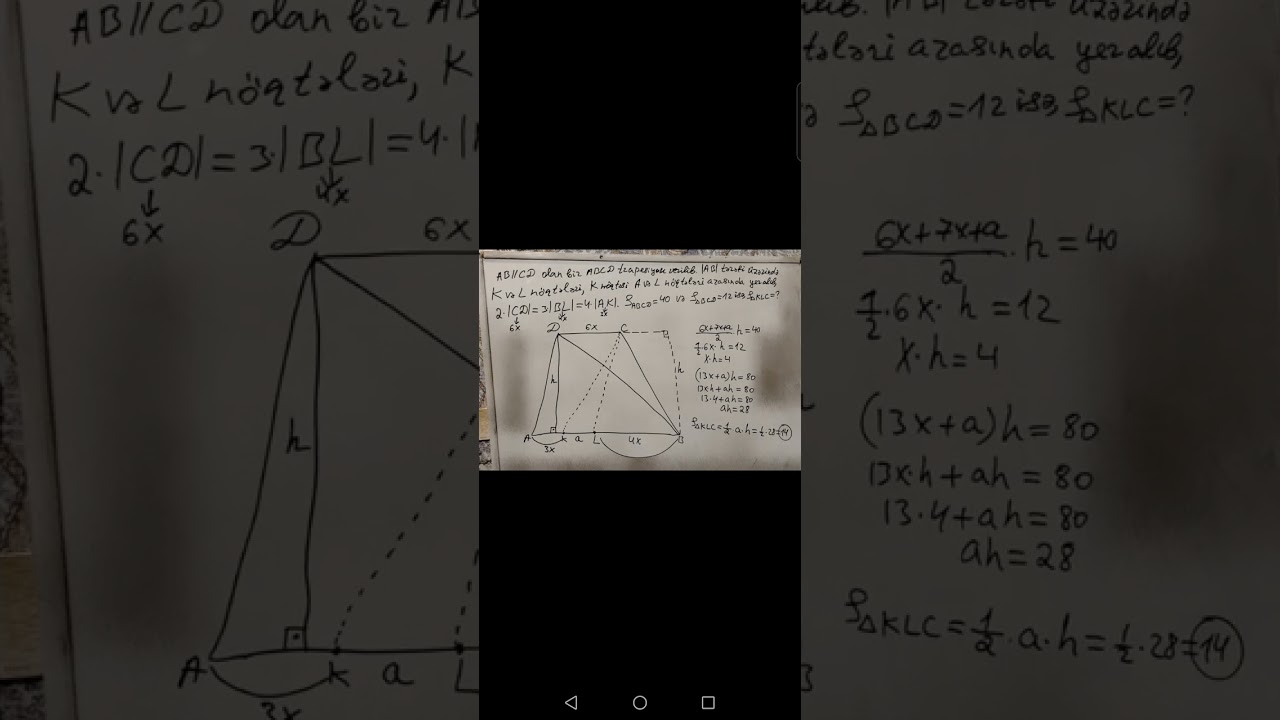 AB//CD olan bir ABCD trapesiyası verilib. |AB| tərəfi üzərində
K və L nöqtələri, K nöqtəsi A və L nöqtələri arasında yeralıb,
2·|CD|=3·|BL|=4·|AK|. S_ABCD=40 və S_ΔBCD=12 isə, S_ΔKLC=?
6x 4x 3x
D 6x C
h h
A K a L 4x B
3x
(6x+7x+a)/2 · h = 40
1/2 · 6x · h = 12
x·h=4
(13x+a)h=80
13x·h+ah=80
13·4+ah=80
ah=28
S_ΔKLC=1/2·a·h=1/2·28=14